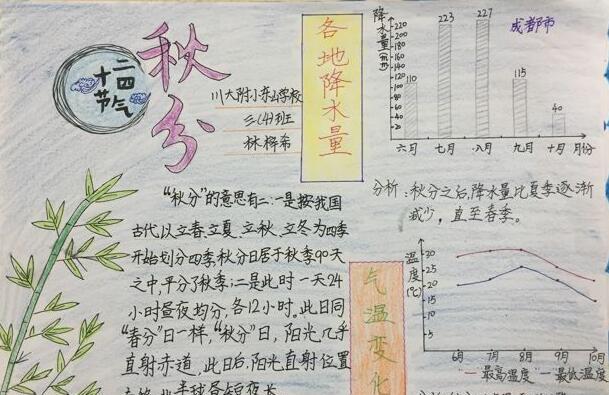 二四
十
节气
秋分
川大附小东山学校
三(4)班
林桦希
各地降水量
降水量(mm)
220
200
180
160
140
120
100
80
60
40
20
110
223
227
115
40
六月 七月 八月 九月 十月 月份
成都市
分析:秋分之后,降水量比夏季逐渐
减少,直至春季。
“秋分”的意思有二:一是按我国
古代以立春、立夏、立秋、立冬为四季
开始划分四季,秋分日居于秋季90天
之中,平分了秋季;二是此时一天24
小时昼夜均分,各12小时。此日同
“春分”日一样,“秋分”日,阳光几乎
直射赤道,此日后,阳光直射位置
半球昼短夜长
气温变化
温度(℃)
30
25
20
15
6月 7月 8月 9月 10月
最高温度 最低温度